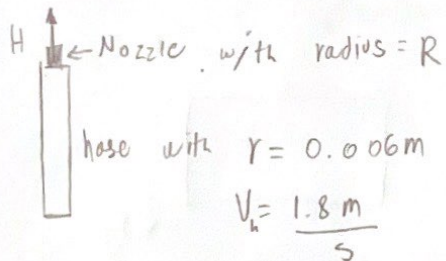 H ← Nozzle. with radius = R
hose with r = 0.006m
V_h = 1.8 m
s